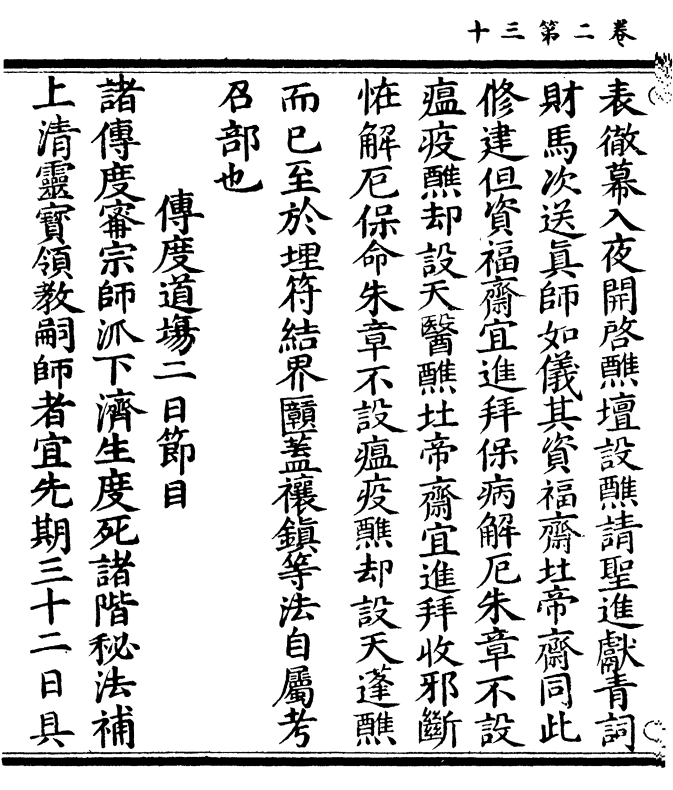 卷二第三十
表徹幕入夜開啓醮壇設醮請聖進獻青詞
財馬次送眞師如儀其資福齋北帝齋同此
修建但資福齋宜進拜保病解厄朱章不設
瘟疫醮却設天醫醮北帝齋宜進拜收邪斷
恠解厄保命朱章不設瘟疫醮却設天蓬醮
而已至於埋符結界蓋禳鎮等法自屬考
召部也
傳度道場二日節目
諸傳度審宗師派下濟生度死諸階秘法補
上清靈寳領教嗣師者宜先期三十二日具